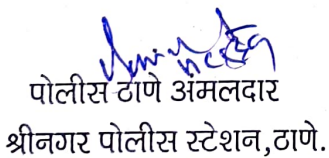 पोलीस ठाणे अंमलदार
श्रीनगर पोलीस स्टेशन,ठाणे.